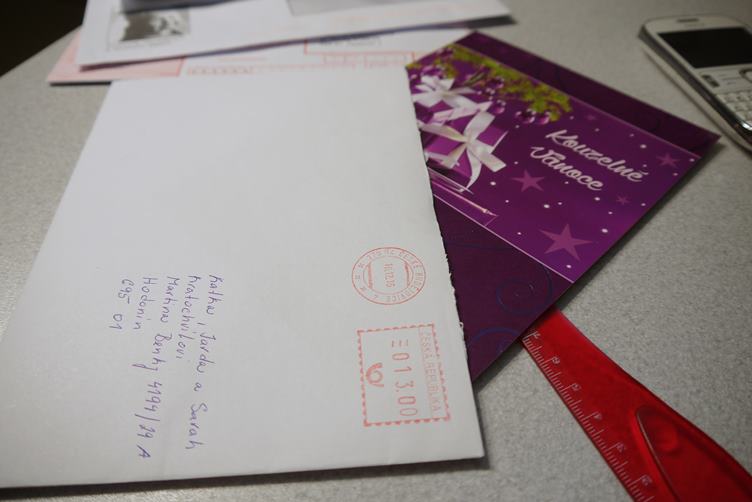 Kouzelné
Vánoce
ČESKÁ REPUBLIKA
=013.00
Katka, Jarda a Sarah
Kratochvílovi
Martina Benky 4194/29 A
Hodonín
695 01